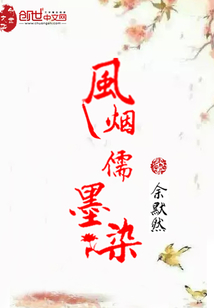 创世中文网
chuangshi.com
風烟
儒
墨染
余默然